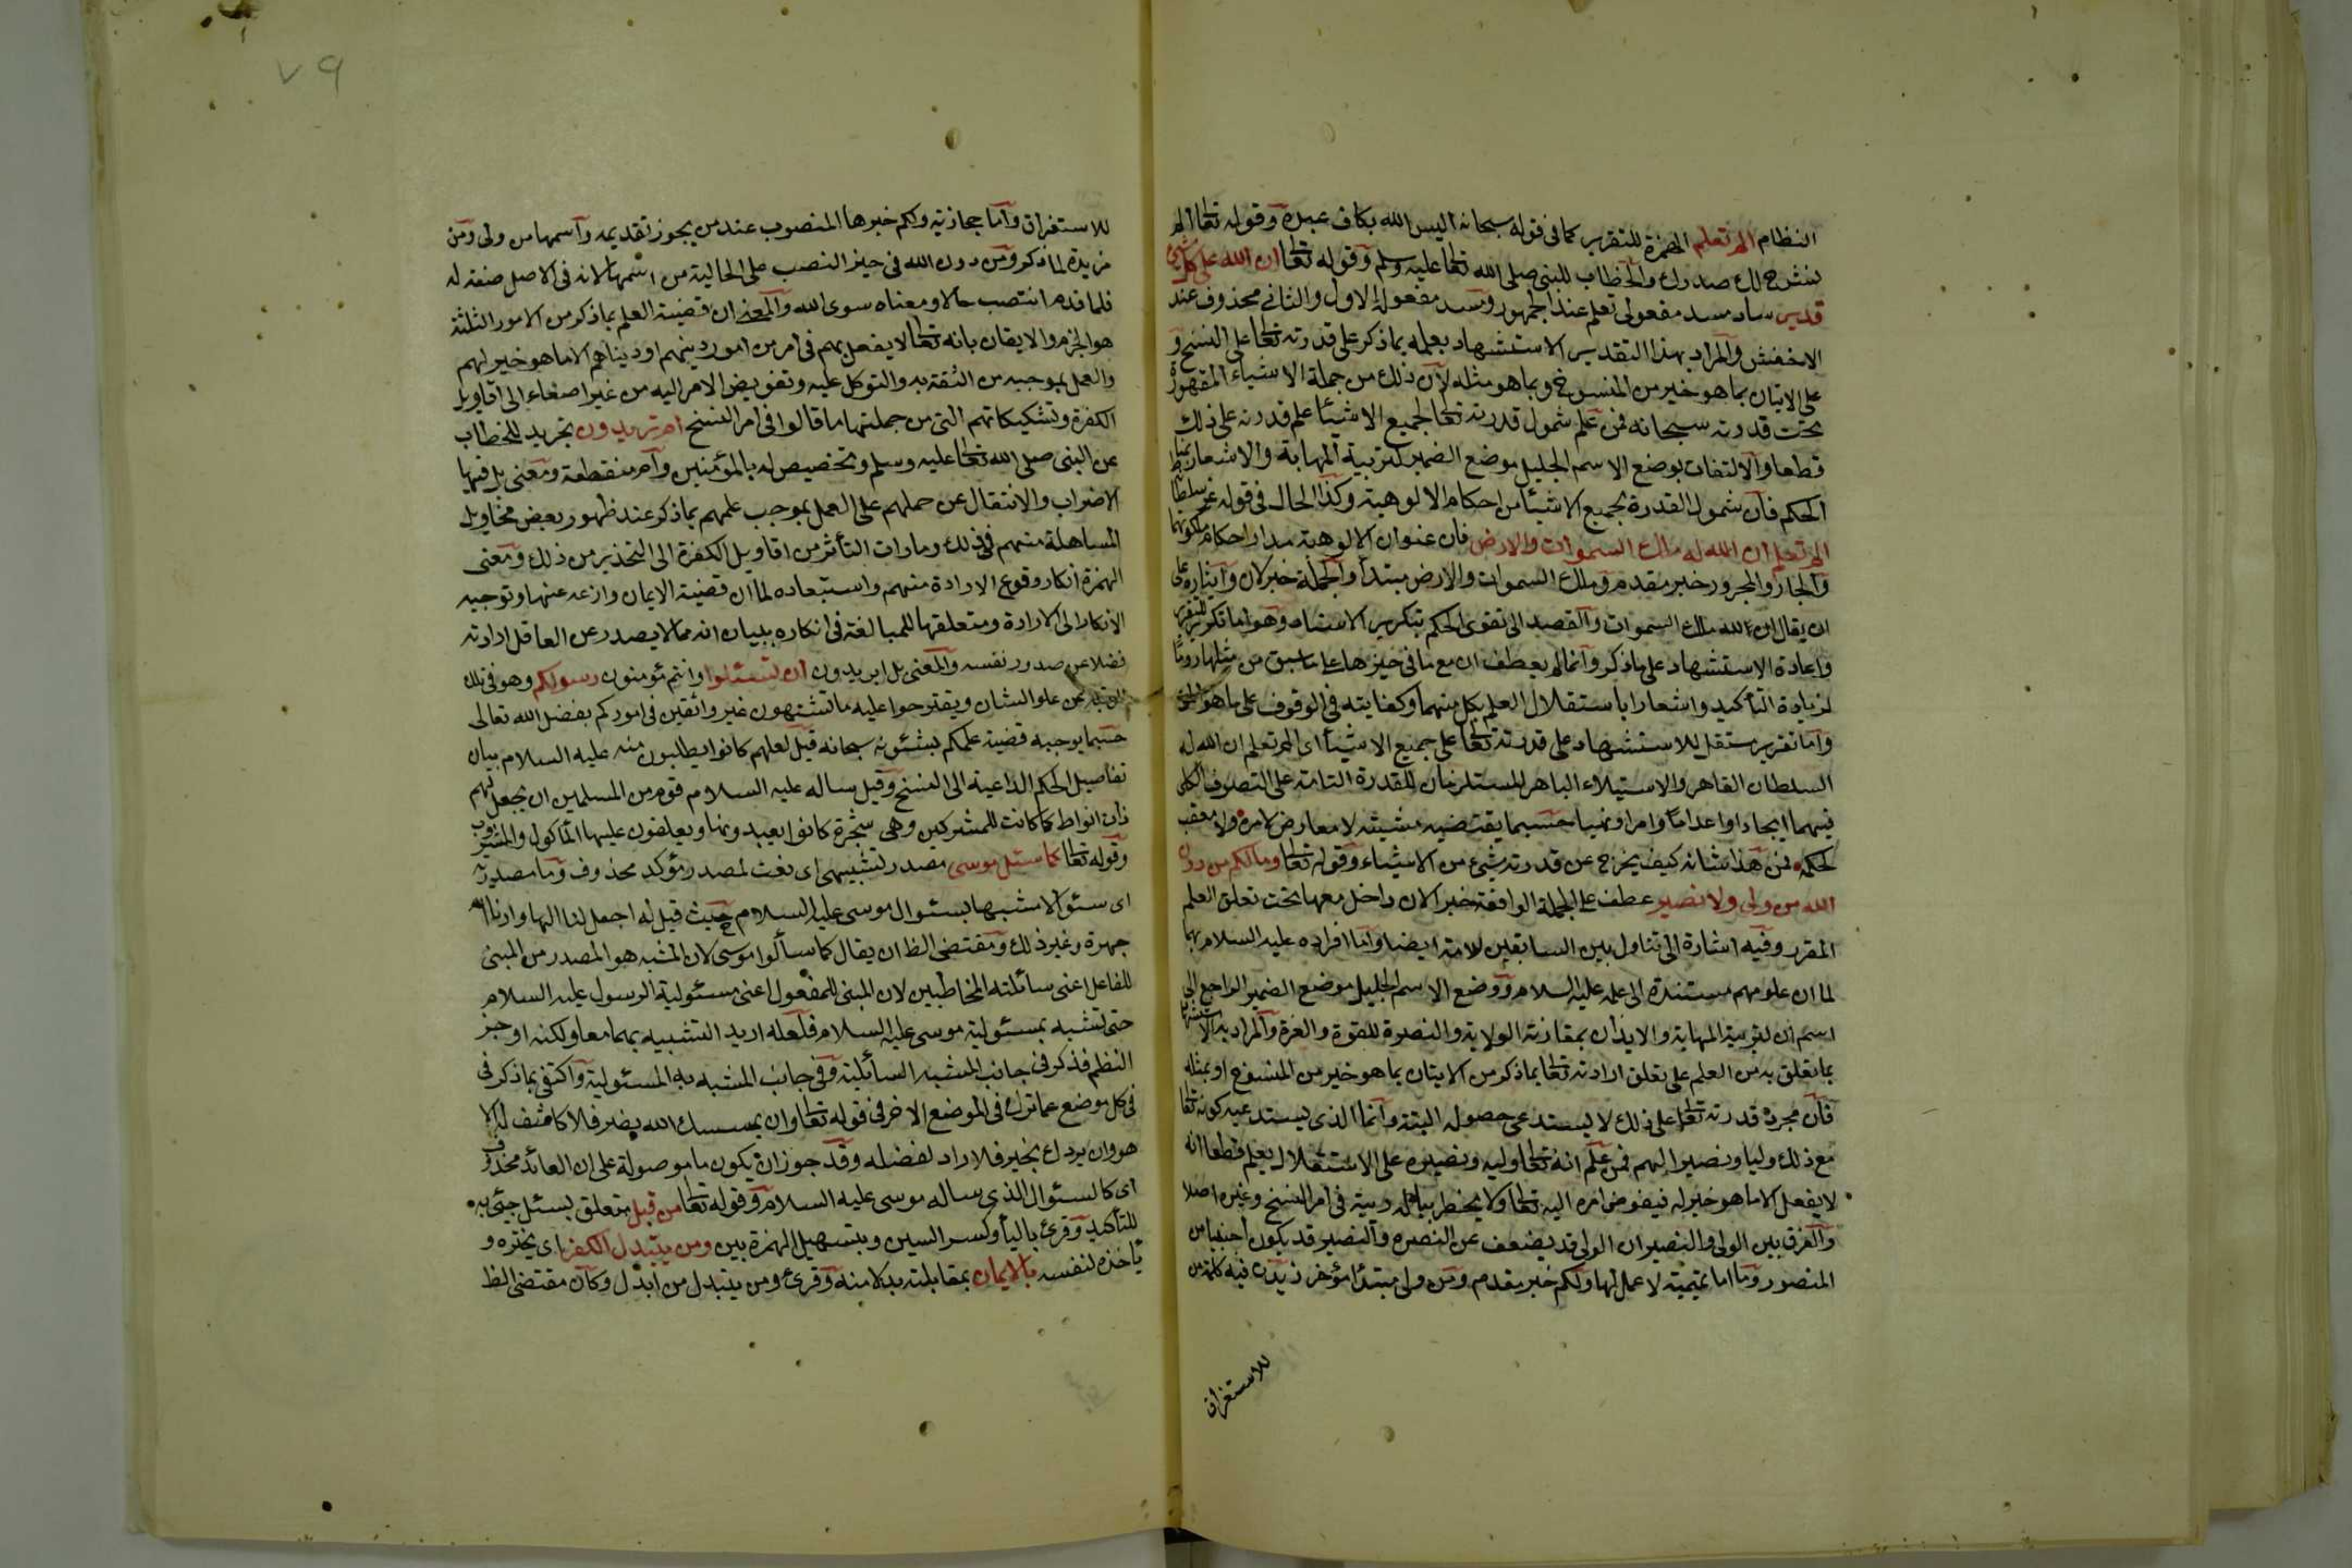 النظام الم تعلم الهمزة للتقرير كما في قوله سبحانه اليس الله بكاف عبده وقوله تعا الم
نشرح لك صدرك والخطاب للنبي صلى الله تعا عليه وسلم وقوله تعا ان الله على كل شئ
قدير ساد مسد مفعولي تعلم عند الجمهور ومسد مفعوله الاول والثاني محذوف عند
الاخفش والمراد بهذا التقدير الاستشهاد بعلمه بما ذكر على قدرته تعا على النسخ و
على الاتيان بما هو خير من المنسوخ وبما هو مثله لان ذلك من جملة الاشياء المقهورة
تحت قدرته سبحانه فمن علم شمول قدرته تعا لجميع الاشيئا علم قدرته على ذلك
قطعا والالتفات بوضع الاسم الجليل موضع الضمير لتربية المهابة والاشعار بمناط
الحكم فان شمول القدرة لجميع الاشيئا من احكام الالوهية وكذا الحال في قوله عز سلطانه
الم تعلم ان الله له ملك السموات والارض فان عنوان الالوهية مدار احكام ملكوتهما
والجار والمجرور خبر مقدم وملك السموات والارض مبتدأ والجملة خبر لان وايثاره على
ان يقال ان لله ملك السموات والقصد الى تقوى الحكم بتكرير الاسناد وهو اما تكرير للتقرير
واعادة الاستشهاد على ما ذكر وانما لم يعطف ان مع ما في حيزها على ما سبق من مثلها روما
لزيادة التأكيد واشعارا باستقلال العلم بكل منهما وكفايته في الوقوف على ما هو المقصود
واما تقرير مستقل للاستشهاد على قدرته تعا على جميع الاشيئا اى الم تعلم ان الله له
السلطان القاهر والاستيلاء الباهر المستلزمان للقدرة التامة على التصرف الكلى
فيهما ايجادا واعداما وامرا ونهيا حسبما يقتضيه مشيته لا معارض لامره ولا معقب
لحكمه فمن هذا شانه كيف يخرج عن قدرته شئ من الاشياء وقوله تعا وما لكم من دون
الله من ولى ولا نصير عطف على الجملة الواقعة خبر الان داخل معها تحت تعلق العلم
المقرر وفيه اشارة الى تناول بين السابقين لامته ايضا واما افراده عليه السلام بهما
لما ان علومهم مستندة الى علمه عليه السلام ووضع الاسم الجليل موضع الضمير الراجع الى
اسم ان لتربية المهابة والايذان بمقارنة الولاية والنصرة للقوة والعزة والمراد به الاستشهاد
بما تعلق به من العلم على تعلق ارادته تعا بما ذكر من الاتيان بما هو خير من المنسوخ او بمثله
فان مجرد قدرته تعا على ذلك لا يستدعى حصوله البتة وانما الذى يستدعيه كونه تعا
مع ذلك وليا ونصيرا لهم فمن علم انه تعا وليه ونصيره على الاستقلال يعلم قطعا انه
لا يفعل الا ما هو خير له فيفوض امره اليه تعا ولا يخطر بباله ريبة في امر النسخ وغيره اصلا
والفرق بين الولى والنصير ان الولى قد يضعف عن النصره والنصير قد يكون اجنبيا من
المنصور وما اما تميمية لا عمل لها ولكم خبر مقدم ومن ولى مبتدأ مؤخر زيدت فيه كلمة من
للاستغراق
٧٩
للاستغراق واما حجازية ولكم خبرها المنصوب عند من يجوز تقديمه واسمها من ولى ومن
مزيدة لما ذكر ومن دون الله في حيز النصب على الحالية من اسمها لانه في الاصل صفة له
فلما قدم انتصب حالا ومعناه سوى الله والمعنى ان قضية العلم بما ذكر من الامور الثلثة
هو الجزم والايقان بانه تعا لا يفعل بهم في امر من امور دينهم او دنياهم الا ما هو خير لهم
والعمل بموجبه من الثقة به والتوكل عليه وتفويض الامر اليه من غير اصغاء الى اقاويل
الكفرة وتشكيكاتهم التى من جملتها ما قالوا في امر النسخ ام تريدون تجريد للخطاب
عن النبي صلى الله تعا عليه وسلم وتخصيص له بالمؤمنين وام منقطعة ومعنى بل فيها
الاضراب والانتقال عن حملهم على العمل بموجب علمهم بما ذكر عند ظهور بعض مخاويل
المساهلة منهم في ذلك ومارات التأثر من اقاويل الكفرة الى التحذير من ذلك ومعنى
الهمزة انكار وقوع الارادة منهم واستبعاده لما ان قضية الايمان وازعه عنها وتوجيه
الانكار الى الارادة ومتعلقها للمبالغة في انكاره ببيان انه مما لا يصدر عن العاقل ارادته
فضلا عن صدور نفسه والمعنى بل اتريدون ان تسئلوا وانتم مؤمنون رسولكم وهو في تلك
من علو الشان ويقترحوا عليه ما تشتهون غير واثقين في اموركم بفضل الله تعالى
حسبما يوجبه قضية علمكم بشئونه سبحانه قيل لعلهم كانوا يطلبون منه عليه السلام بيان
تفاصيل الحكم الداعية الى النسخ وقيل ساله عليه السلام قوم من المسلمين ان يجعل لهم
ذات انواط كما كانت للمشركين وهى شجرة كانوا يعبدونها ويعلقون عليها المأكول والمشروب
وقوله تعا كما سئل موسى مصدر تشبيهى اى نعت لمصدر مؤكد محذوف وما مصدرية
اى سئوالا مشبها بسئوال موسى عليه السلام حيث قيل له اجعل لنا الها وارنا الله
جهرة وغير ذلك ومقتضى الظ ان يقال كما سألوا موسى لان المشبه هو المصدر من المبنى
للفاعل اعنى سائلته المخاطبين لان المبنى للمفعول اعنى مسئولية الرسول عليه السلام
حتى تشبه بمسئولية موسى عليه السلام فلعله اريد التشبيه بهما معا ولكنه اوجز
النظم فذكر في جانب المشبه السائلية وفي جانب المشبه به المسئولية واكتفى بما ذكر في
في كل موضع عما ترك في الموضع الاخر في قوله تعا وان يمسسك الله بضر فلا كاشف له الا
هو وان يردك بخير فلا راد لفضله وقد جوز ان يكون ما موصولة على ان العائد محذوف
اى كالسئوال الذى ساله موسى عليه السلام وقوله تعا من قبل متعلق بسئل جئ به
للتأكيد وقرئ باليأ وكسر السين وبتسهيل الهمزة بين ومن يتبدل الكفر اى يختره و
يأخذه لنفسه بالايمان بمقابلته بدلا منه وقرئ ومن يتبدل من ابدل وكان مقتضى الظ